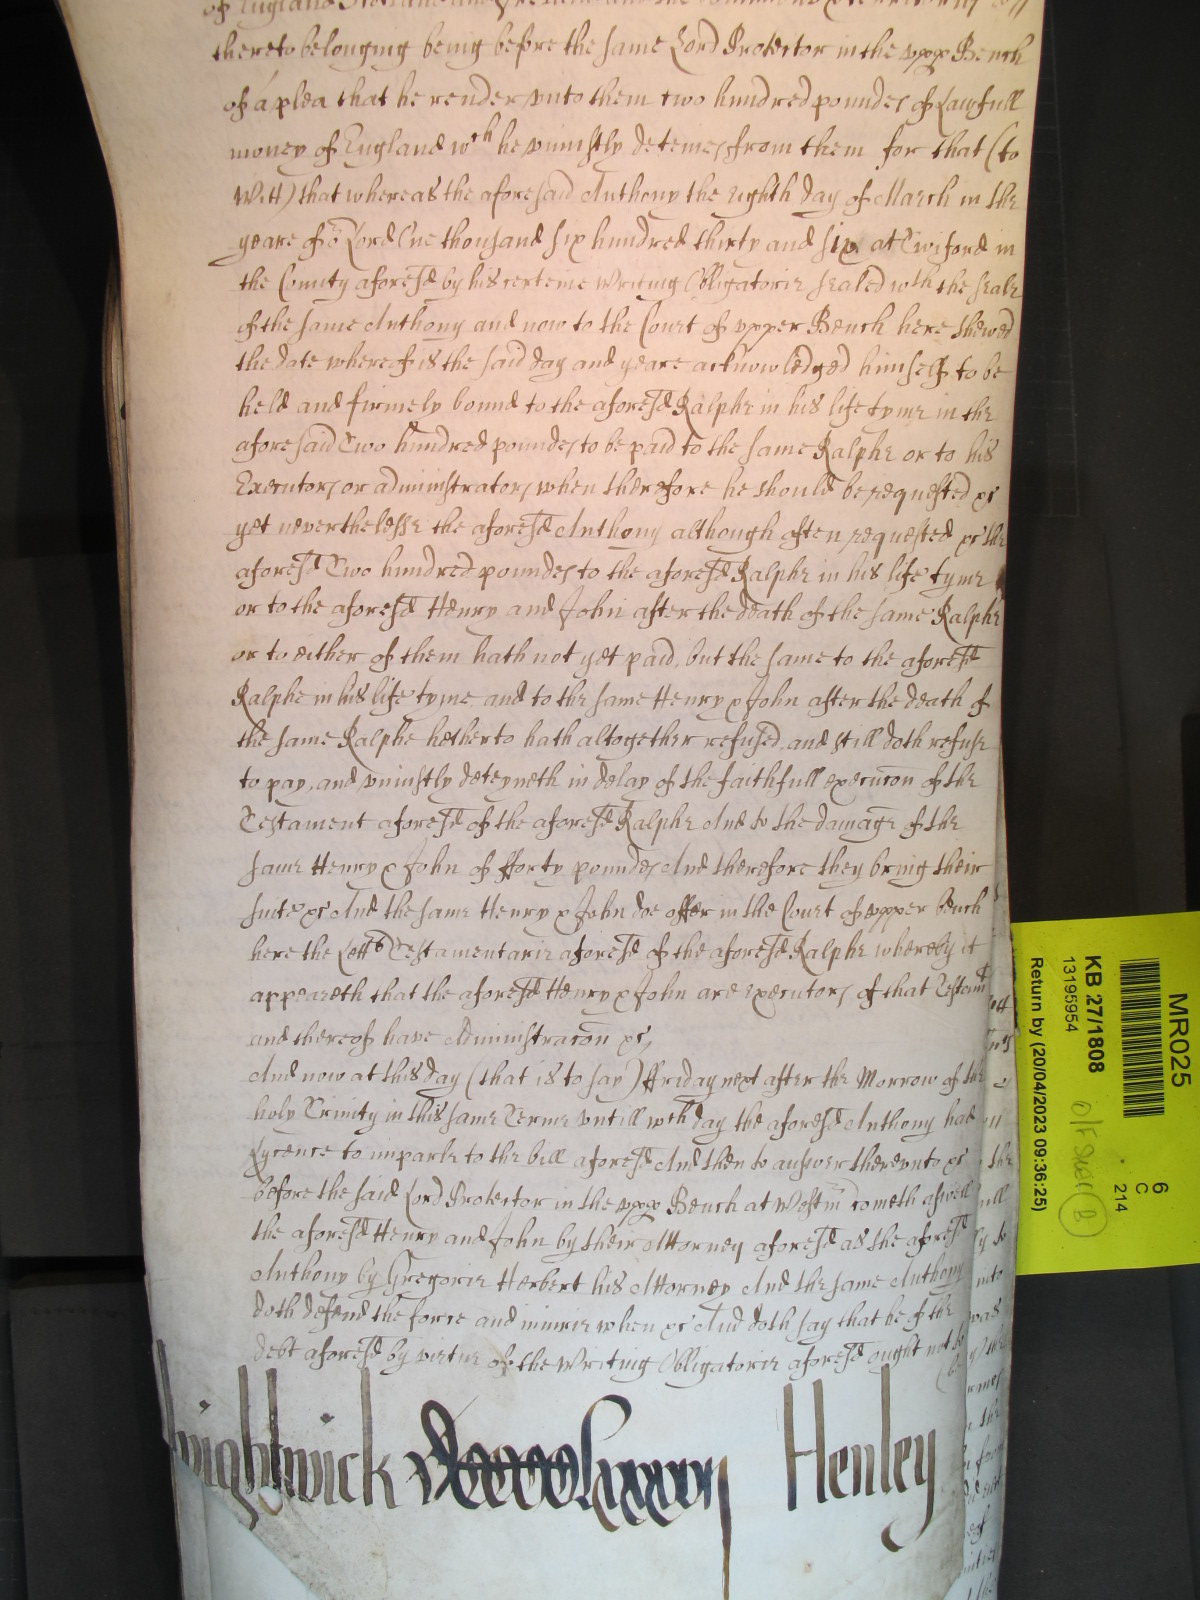 of England Scotland and Ireland and the
thereto belonging being before the same Lord Protector in the upp Bench
of a plea that he render unto them two hundred poundes of Lawfull
money of England wch he uniustly deteines from them for that (to
Witt) that whereas the aforesaid Anthony the eighth day of March in the
yeare of or Lord One thousand six hundred thirty and six at Twiford in
the County aforesd by his certeine Writing Obligatorie sealed wth the seale
of the same Anthony and now to the Court of upper Bench here shewed
the date whereof is the said day and yeare acknowledged himself to be
held and firmely bound to the aforesd Ralphe in his life tyme in the
aforesaid Two hundred poundes to be paid to the same Ralphe or to his
Executors or administrators when therefore he should be requested &c
yet neverthelesse the aforesd Anthony although often requested &c the
aforesd Two hundred poundes to the aforesd Ralphe in his life tyme
or to the aforesd Henry and John after the death of the same Ralphe
or to either of them hath not yet paid, but the same to the aforesd
Ralphe in his life tyme, and to the same Henry & John after the death of
the same Ralphe hetherto hath altogether refused, and still doth refuse
to pay, and uniustly deteyneth in delay of the faithfull execucon of the
Testament aforesd of the aforesd Ralphe And to the damage of the
same Henry & John of fforty poundes And therefore they bring their
suite &c And the same Henry & John doe offer in the Court of upper bench
here the Letts Testamentarie aforesd of the aforesd Ralphe whereby it
appeareth that the aforesd Henry & John are executors of that Testamt
and thereof have Administracon &c,
And now at this day (that is to say) ffriday next after the Morrow of the
holy Trinity in this same Terme untill wch day the aforesd Anthony had
Lycence to imparle to the bill aforesd And then to answer thereunto &c
before the said Lord Protector in the upp Bench at Westm cometh aswell
the aforesd Henry and John by their Attorney aforesd as the aforesd
Anthony by Gregorie Herbert his Attorney And the same Anthony
doth defend the force and iniurie when &c And doth say that he of the
debt aforesd by virtue of the Writing Obligatorie aforesd ought not to
Henley
MR025
6
C
214
KB 27/1808
13195954
Return by (20/04/2023 09:36:25)